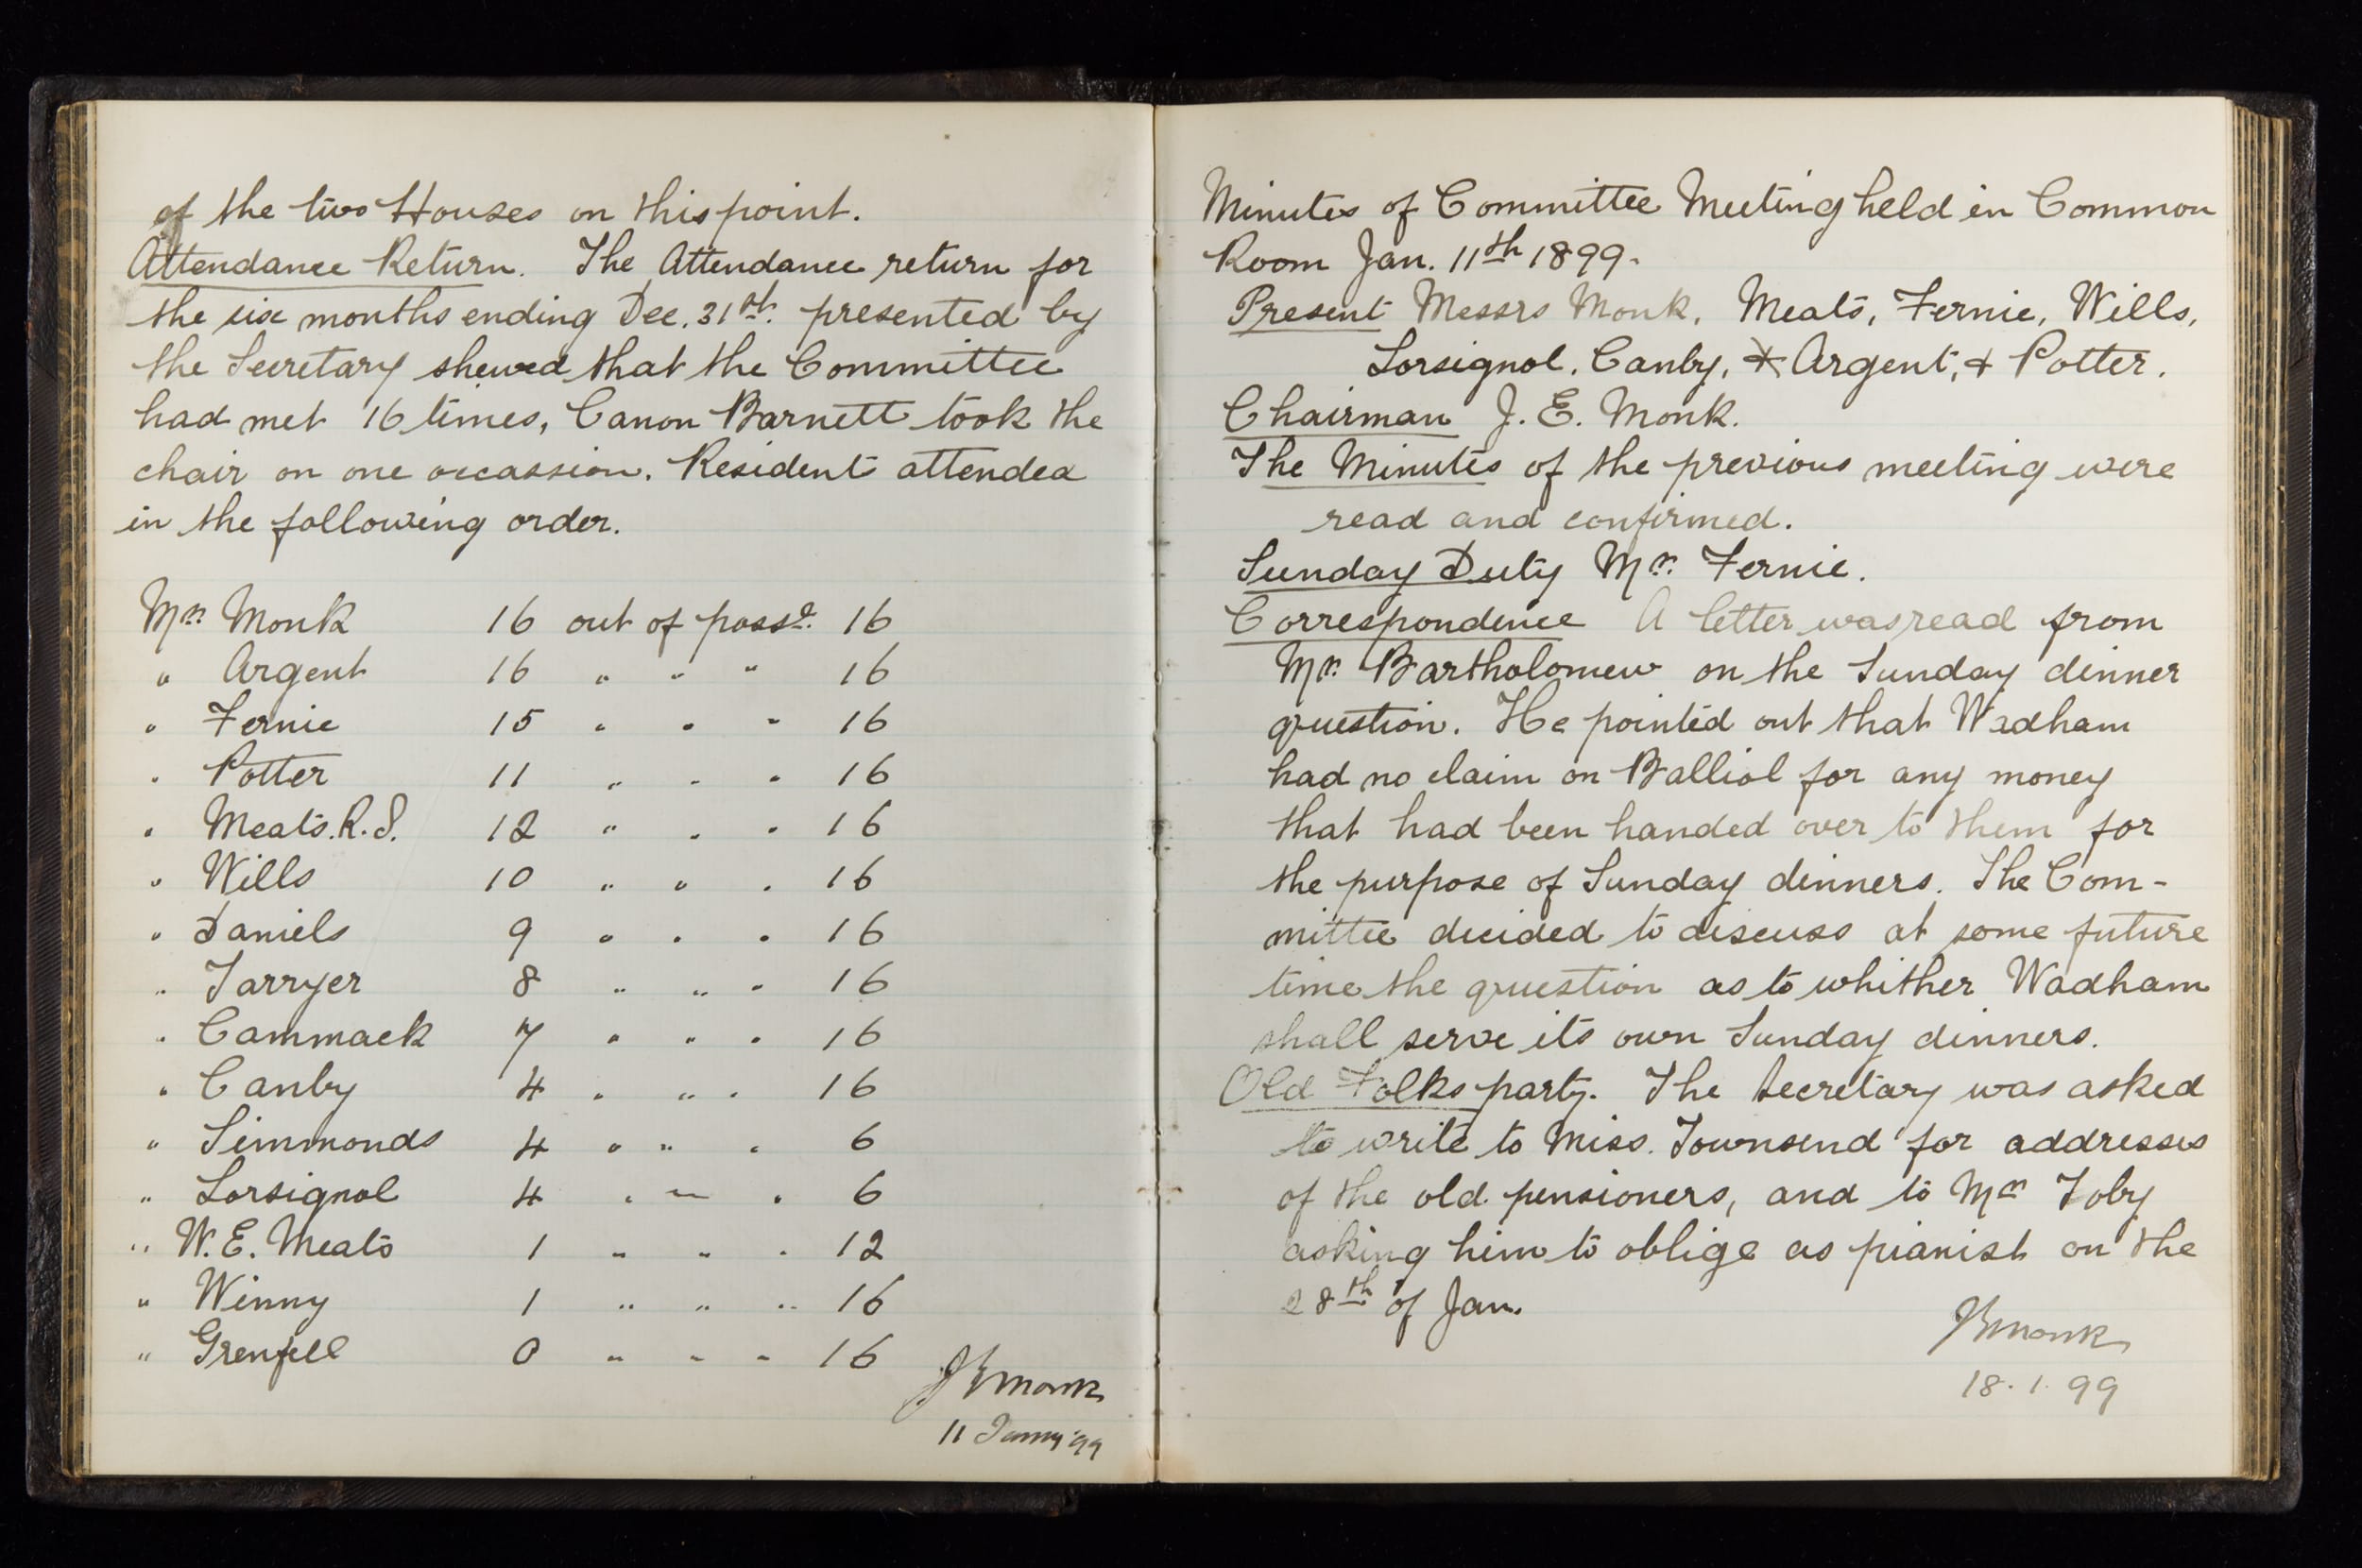 of the two Houses on this point.
Attendance Return. The Attendance return for
the six months ending Dec. 31st. presented by
the Secretary shewed that the Committee
had met 16 times, Canon Barnett took the
chair on one occassion. Residents attended
in the following order.
Mr. Monk 16 out of posse. 16
" Argent 16 " " " 16
" Fernie 15 " " " 16
" Potter 11 " " " 16
" Meats. R. S. 12 " " " 16
" Wills 10 " " " 16
" Daniels 9 " " " 16
" Tarryer 8 " " " 16
" Cammack 7 " " " 16
" Canby 4 " " " 16
" Simmonds 4 " " " 6
" Lorsignol 4 " " " 6
" W. E. Meats 1 " " " 12
" Winny 1 " " " 16
" Grenfell 0 " " " 16
J E Monk
11 Janny '99
Minutes of Committee Meeting held in Common
Room Jan. 11th 1899.
Present Messrs Monk, Meats, Fernie, Wills,
Lorsignol, Canby, Argent, + Potter.
Chairman J. E. Monk.
The Minutes of the previous meeting were
read and confirmed.
Sunday Duty Mr. Fernie.
Correspondence A letter was read from
Mr. Bartholomew on the Sunday dinner
question. He pointed out that Wadham
had no claim on Balliol for any money
that had been handed over to them for
the purpose of Sunday dinners. The Com-
mittee decided to discuss at some future
time the question as to whither Wadham
shall serve its own Sunday dinners.
Old Folks party. The Secretary was asked
to write to Miss. Townsend for addresses
of the old pensioners, and to Mr Toby
asking him to oblige as pianist on the
28th of Jan.
J E Monk
18. 1. 99